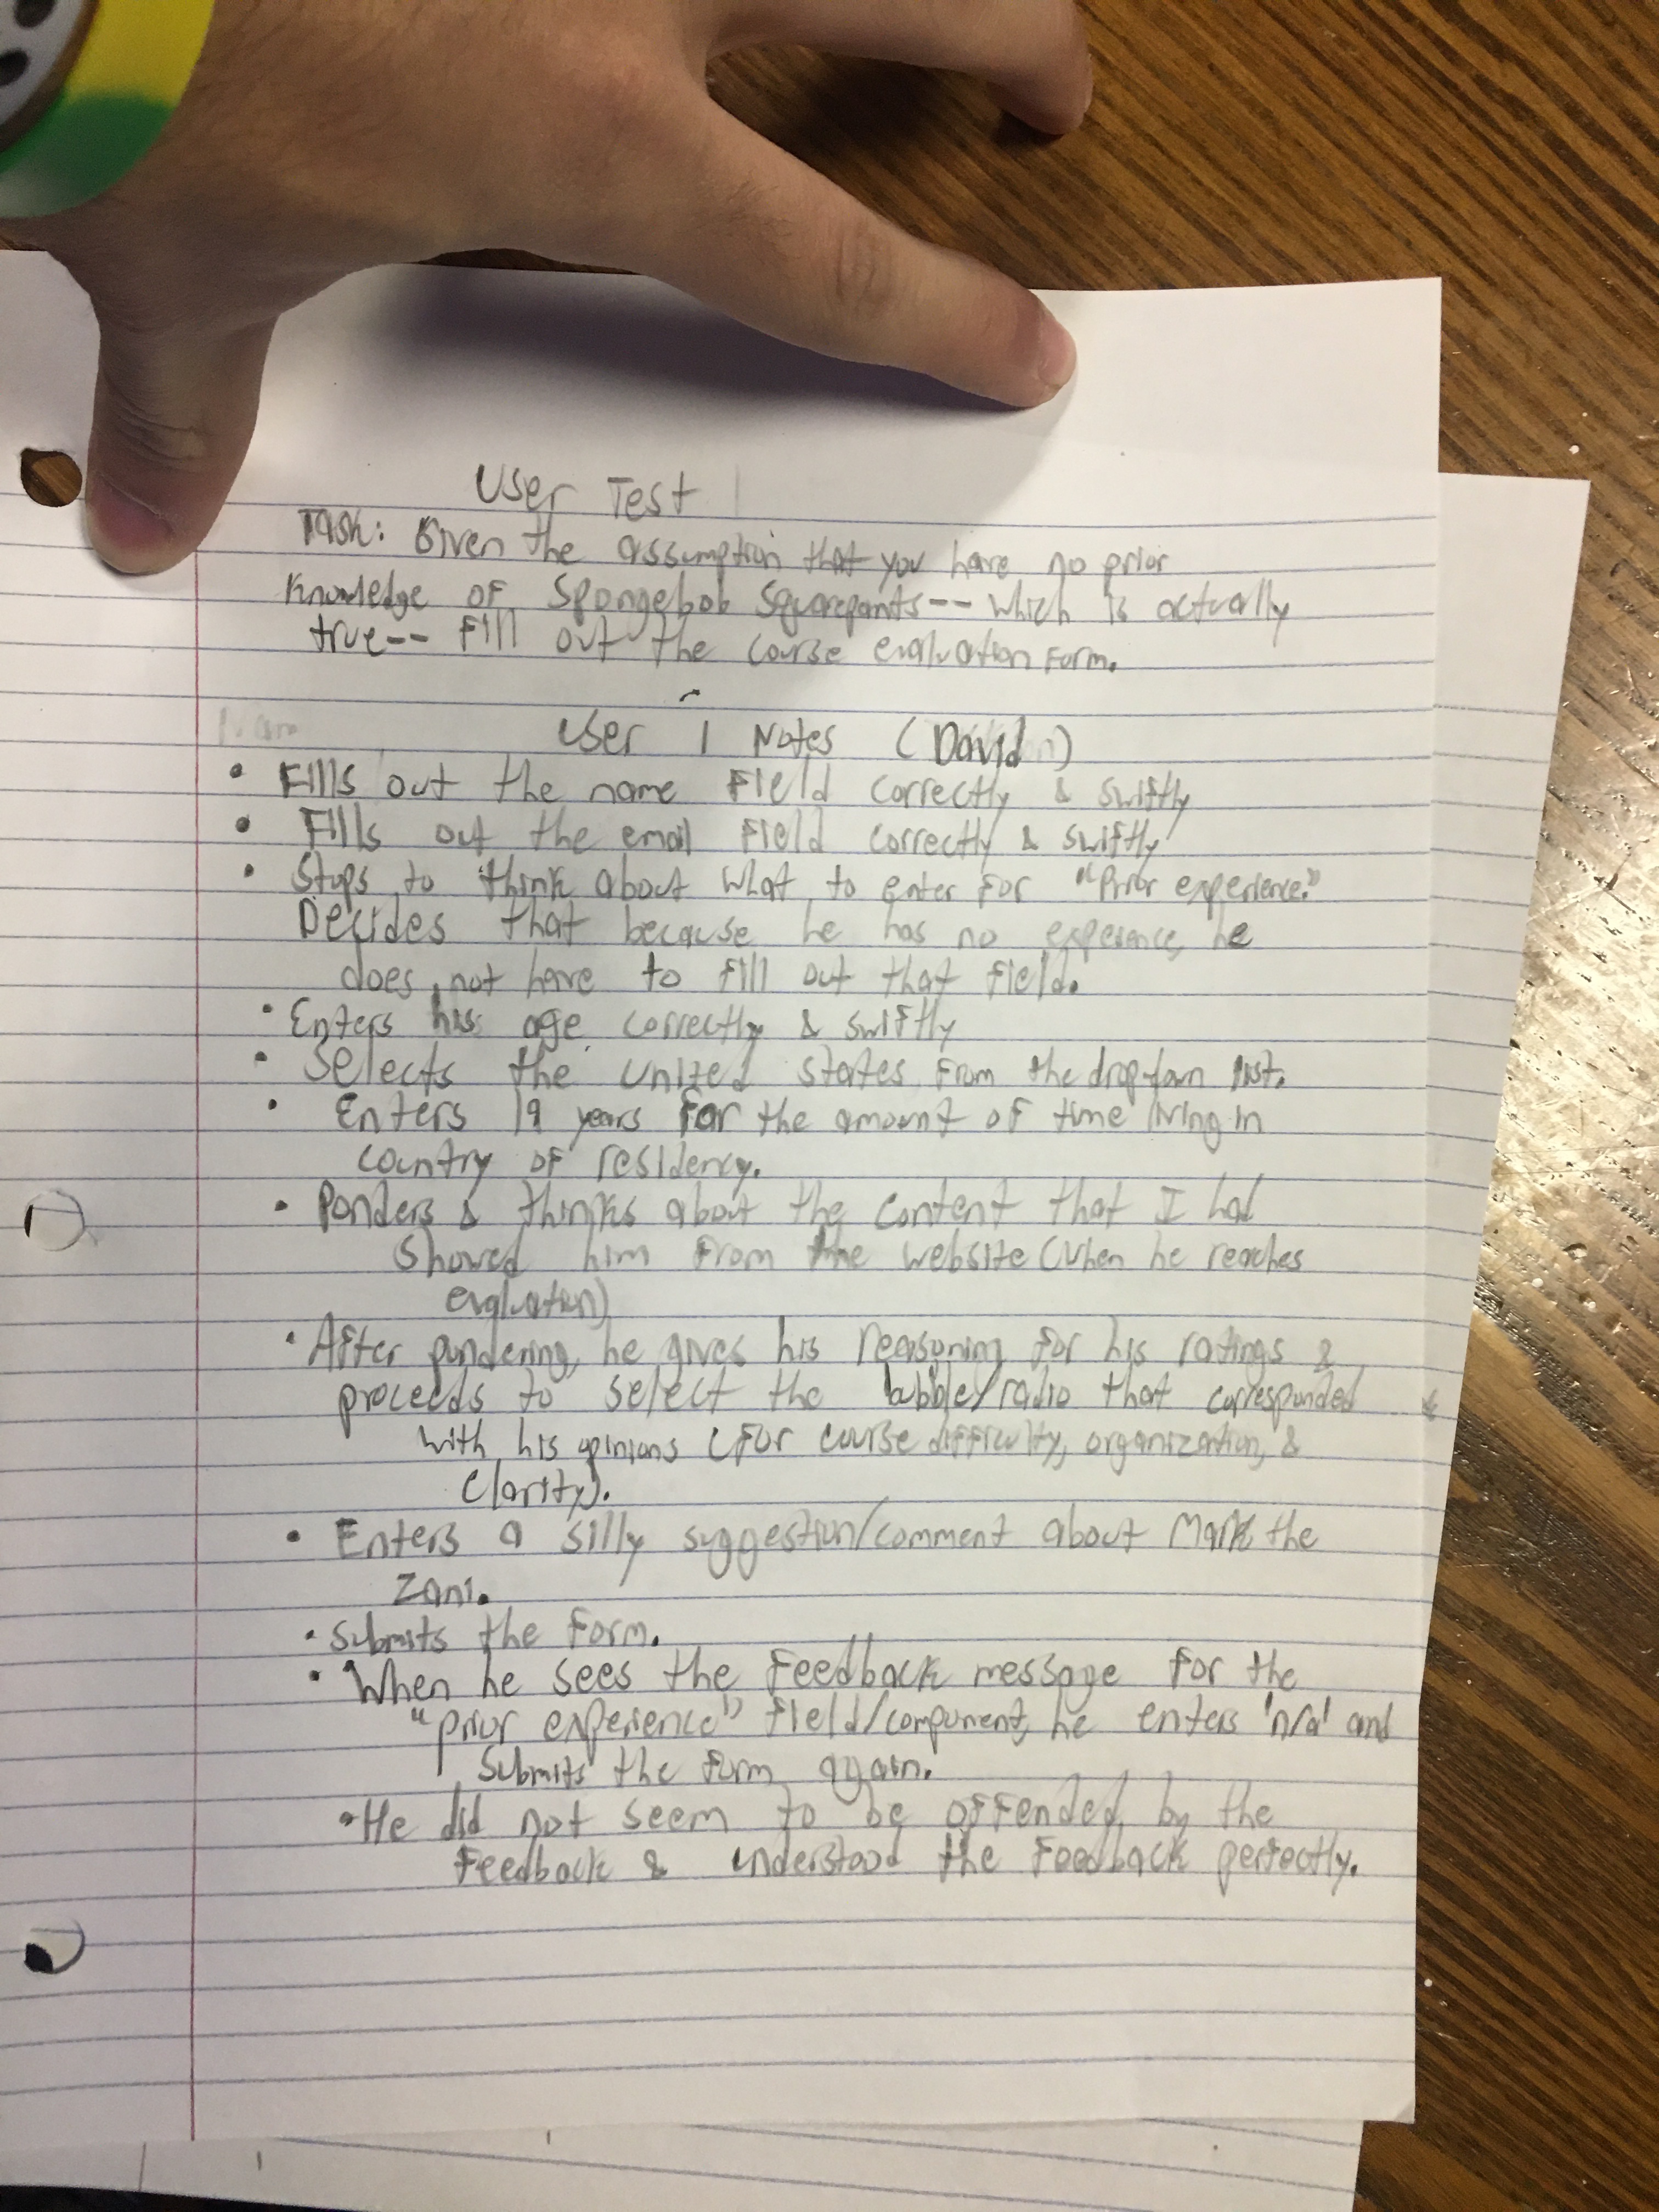 User Test
Task: Given the assumption that you have no prior
knowledge of Spongebob Squarepants-- which is actually
true-- Fill out the course evaluation form.
User 1 Notes (David)
• Fills out the name field correctly & swiftly
• Fills out the email field correctly & swiftly
• Stops to think about what to enter for "Prior experience."
Decides that because he has no experience, he
does not have to fill out that field.
• Enters his age correctly & swiftly
• Selects the United States from the dropdown list.
• Enters 19 years for the amount of time living in
country of residency.
• Ponders & thinks about the content that I had
showed him from the website (when he reaches
evaluation)
• After pondering, he gives his reasoning for his ratings &
proceeds to select the bubble/radio that corresponded
with his opinions (for course difficulty, organization, &
clarity).
• Enters a silly suggestion/comment about Mark the
Zani.
• Submits the form.
• When he sees the feedback message for the
"prior experience" field/component, he enters 'n/a' and
submits the form again.
• He did not seem to be offended by the
feedback & understood the feedback perfectly.